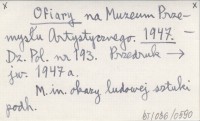 Ofiary na Muzeum Prze-
mysłu Artystycznego. 1947. –
Dz. Pol. nr 193. Przedruk →
jw. 1947 a.
M. in. okazy ludowej sztuki
podh.